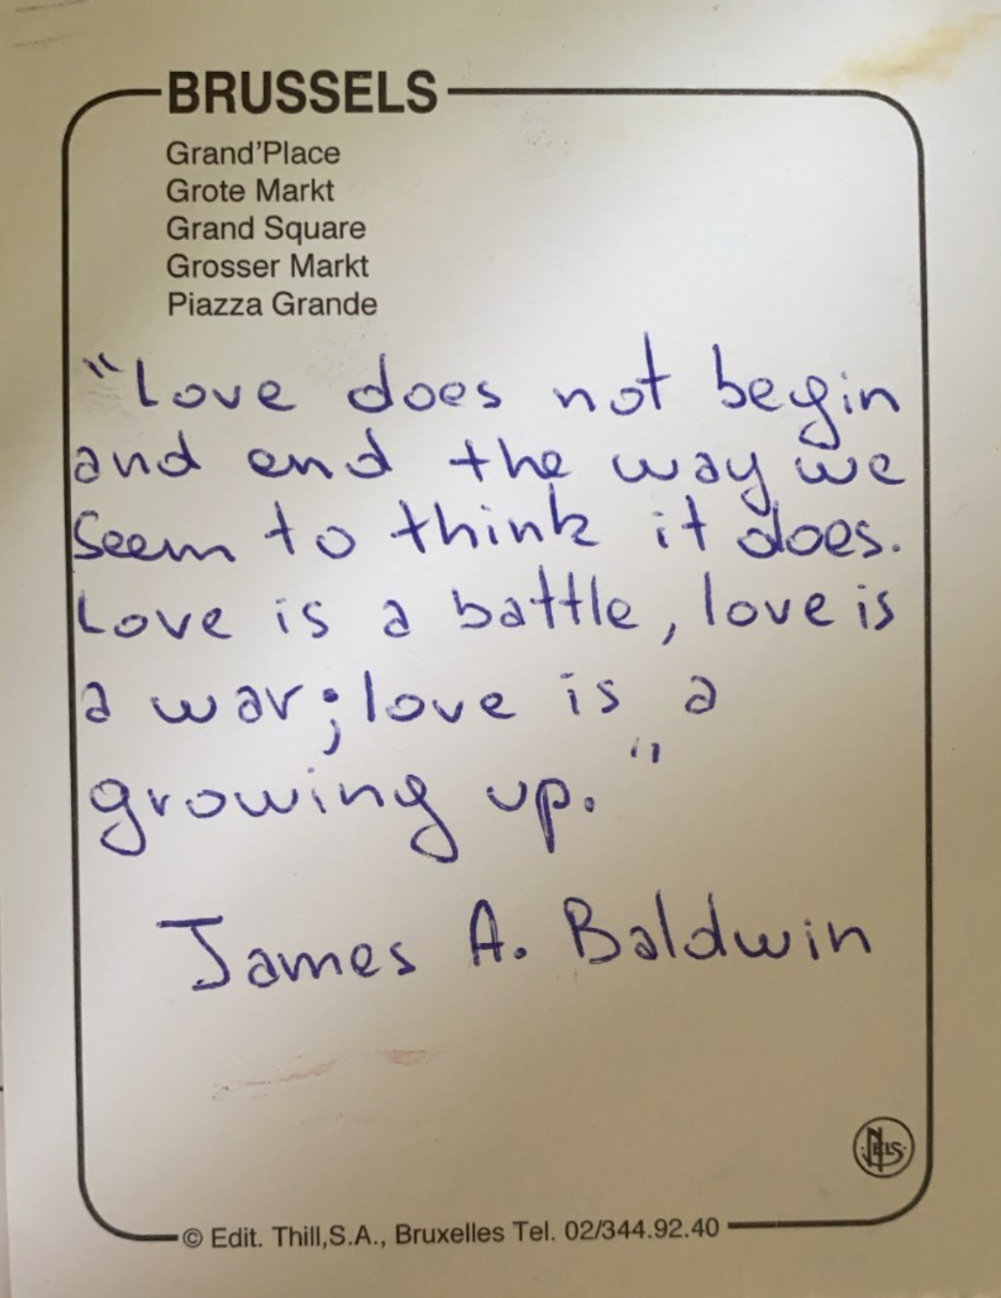 BRUSSELS
Grand'Place
Grote Markt
Grand Square
Grosser Markt
Piazza Grande
"Love does not begin
and end the way we
seem to think it does.
Love is a battle, love is
a war; love is a
growing up."
James A. Baldwin
NELS
© Edit. Thill,S.A., Bruxelles Tel. 02/344.92.40